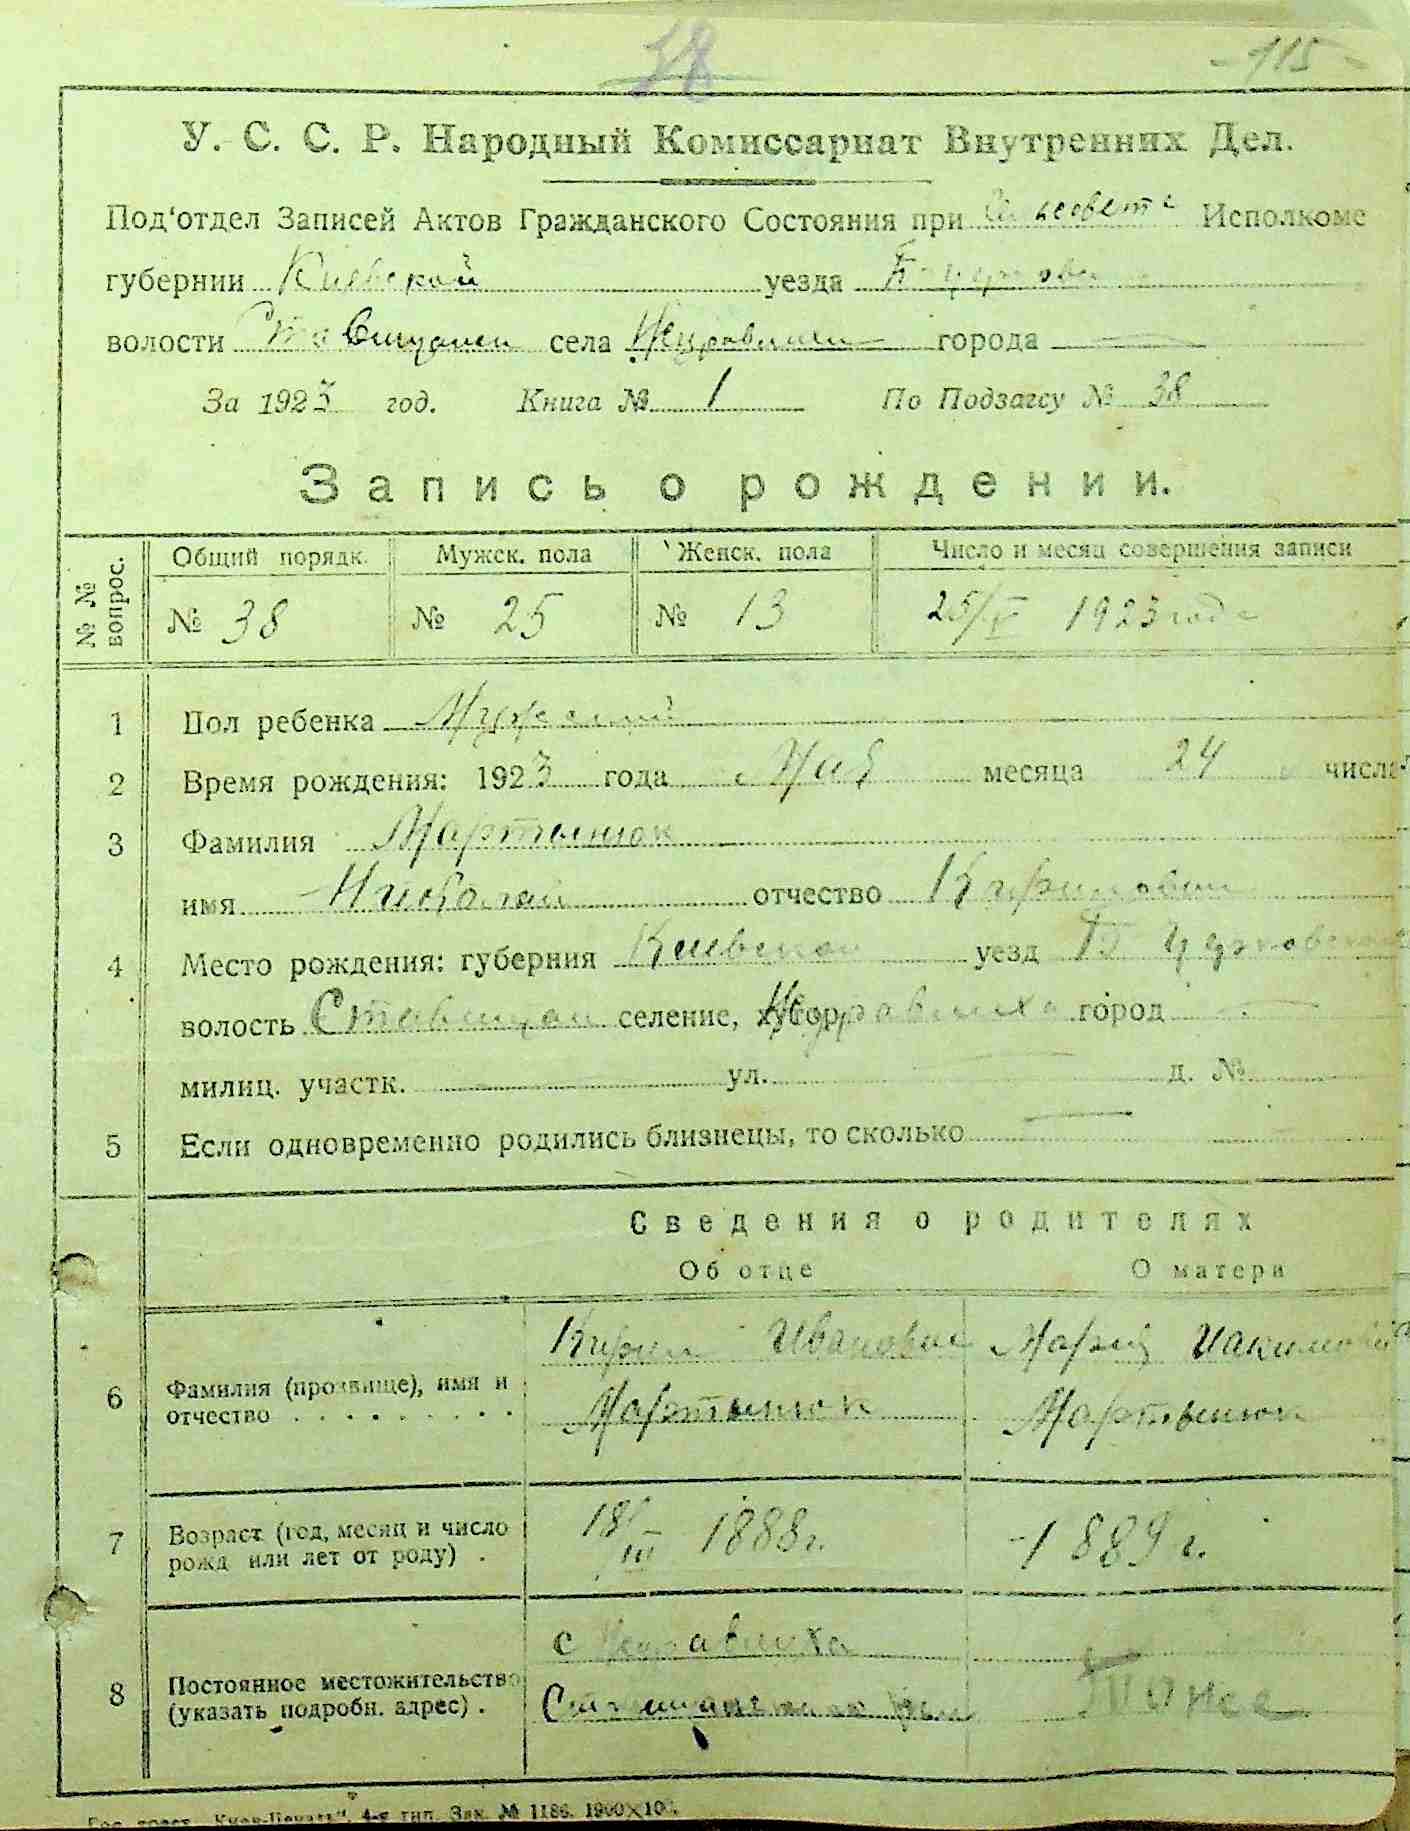 38
- 115 -
У. С. С. Р. Народный Комиссариат Внутренних Дел.
Под'отдел Записей Актов Гражданского Состояния при Исполкоме
губернии Киевской уезда
волости села города —
За 1923 год. Книга № 1 По Подзагсу № 38
Запись о рождении.
№ № вопрос.
Общий порядк. Мужск. пола Женск. пола Число и месяц совершения записи
№ 38 № 25 № 13 25/V 1923 года
1 Пол ребенка Мужеский
2 Время рождения: 1923 года Мая месяца 24 числа
3 Фамилия Мартынюк
имя Николай отчество Кирилович
4 Место рождения: губерния Киевской уезд Б Церковской
волость селение, хутор город —
милиц. участк. — ул. — д. №
5 Если одновременно родились близнецы, то сколько —
Сведения о родителях
Об отце О матери
6 Фамилия (прозвище), имя и отчество . . . . . . . . .
Кирил Иванович
Мартынюк
Мария
Мартынюк
7 Возраст (год, месяц и число рожд или лет от роду) .
18/III 1888 г.
1889 г.
8 Постоянное местожительство (указать подробн. адрес) .
с
Тоже
4-я тип. Зак. № 1186. 1900×100.